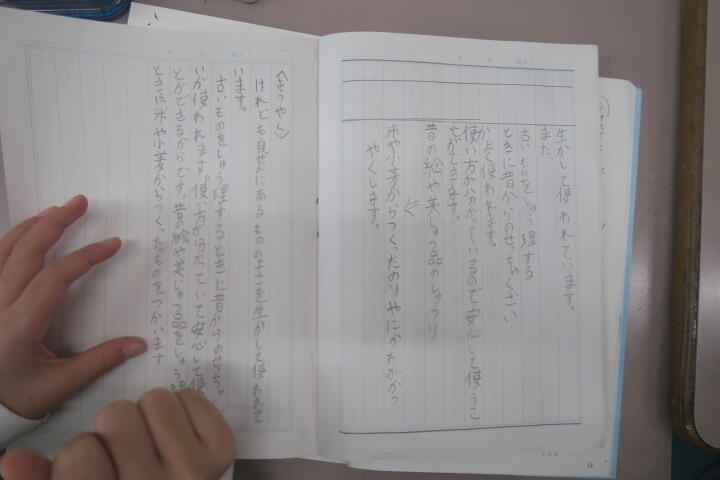 生かして使われています。
また、
古いものをしゅう理する
ときに昔からのせっちゃくざい
がよく使われます。
使い方が分かっているので安心して使うこ
とができます。
昔の絵や美じゅつ品のしゅうり
米や小麦からつくったのりやにかわがかつ
やくします。
〈ようやく〉
けれども自ぜんにあるもののよさを生かして使われて
います。
古いものをしゅう理するときに昔からのせっちゃ
いが使われます。使い方が分かっていて安心して使
とができるからです。昔の絵や美じゅつ品をしゅう理
ときは米や小麦からつくったものをつかいます
14